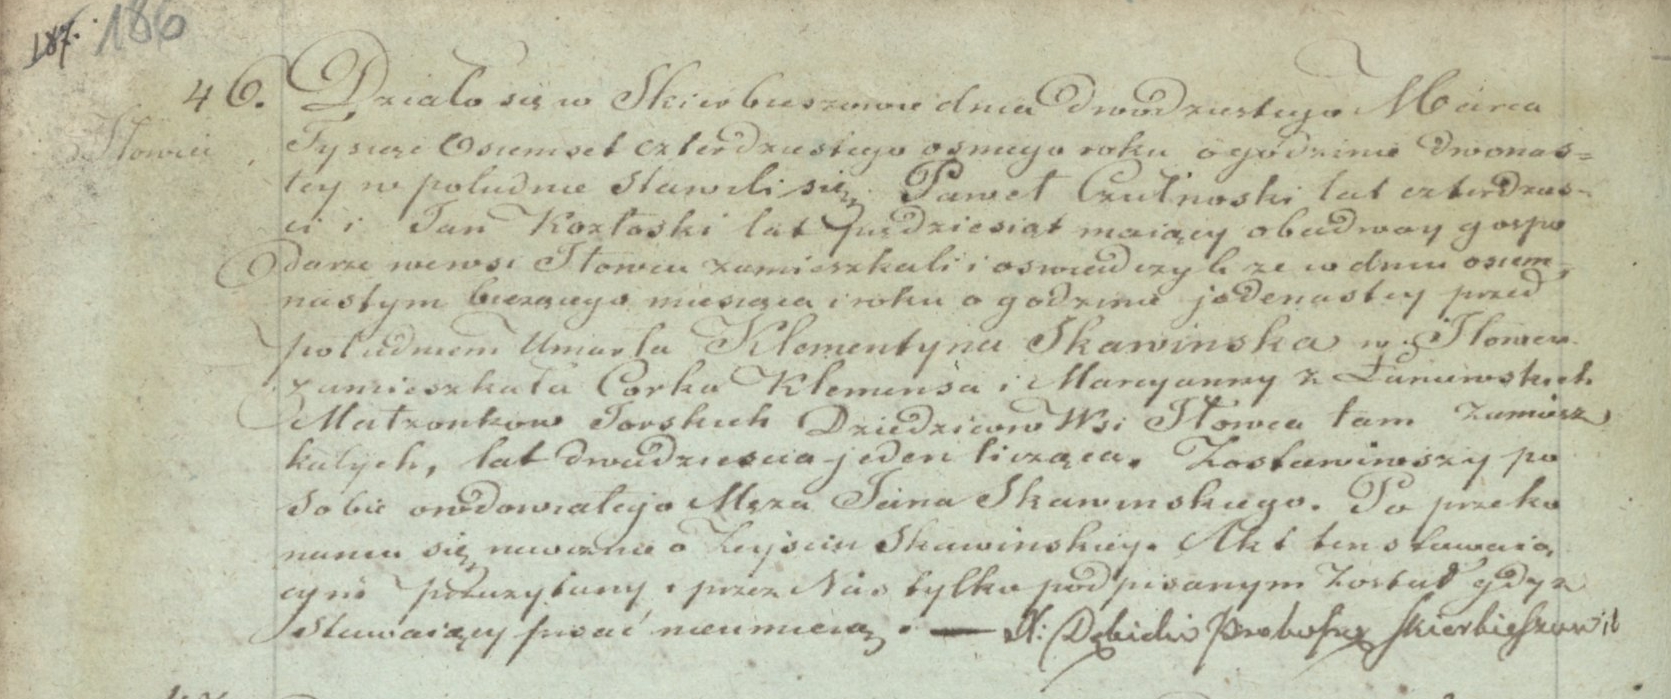 187. 186
46. Działo się w Skierbieszowie dnia dwódziestego Marca
Iłowiec Tysiąc Osiemset czterdziestego osmego roku o godzinie dwonas=
tey w południe stawili się Paweł lat czterdzies-
ci i Jan Kozłoski lat pięździesiąt maiący obadway gospo
darze wewsi Iłowcu zamieszkali i oswiadczyli ze w dniu osiem=
nastym bieżącego miesiąca i roku o godzinie jedenastey przed
południem Umarła Klementyna Skawinska w Iłowcu
zamieszkała Corka Klemensa i Maryanny z
Małzonkow Dziedzicow Wsi Iłowca tam zamiesz
kałych, lat dwadziescia jeden licząca. Zostawiwszy po
sobie owdowiałego Męza Jana Skawinskiego. Po przeko
naniu się naocznie o Zeyściu Skawinskiey. Akt ten stawaią
cym przeczytany i przez Nas tylko podpisanym został gdyz
stawaiący pisać nieumieią. — X: Dębicki Proboszcz Skierbieszowski